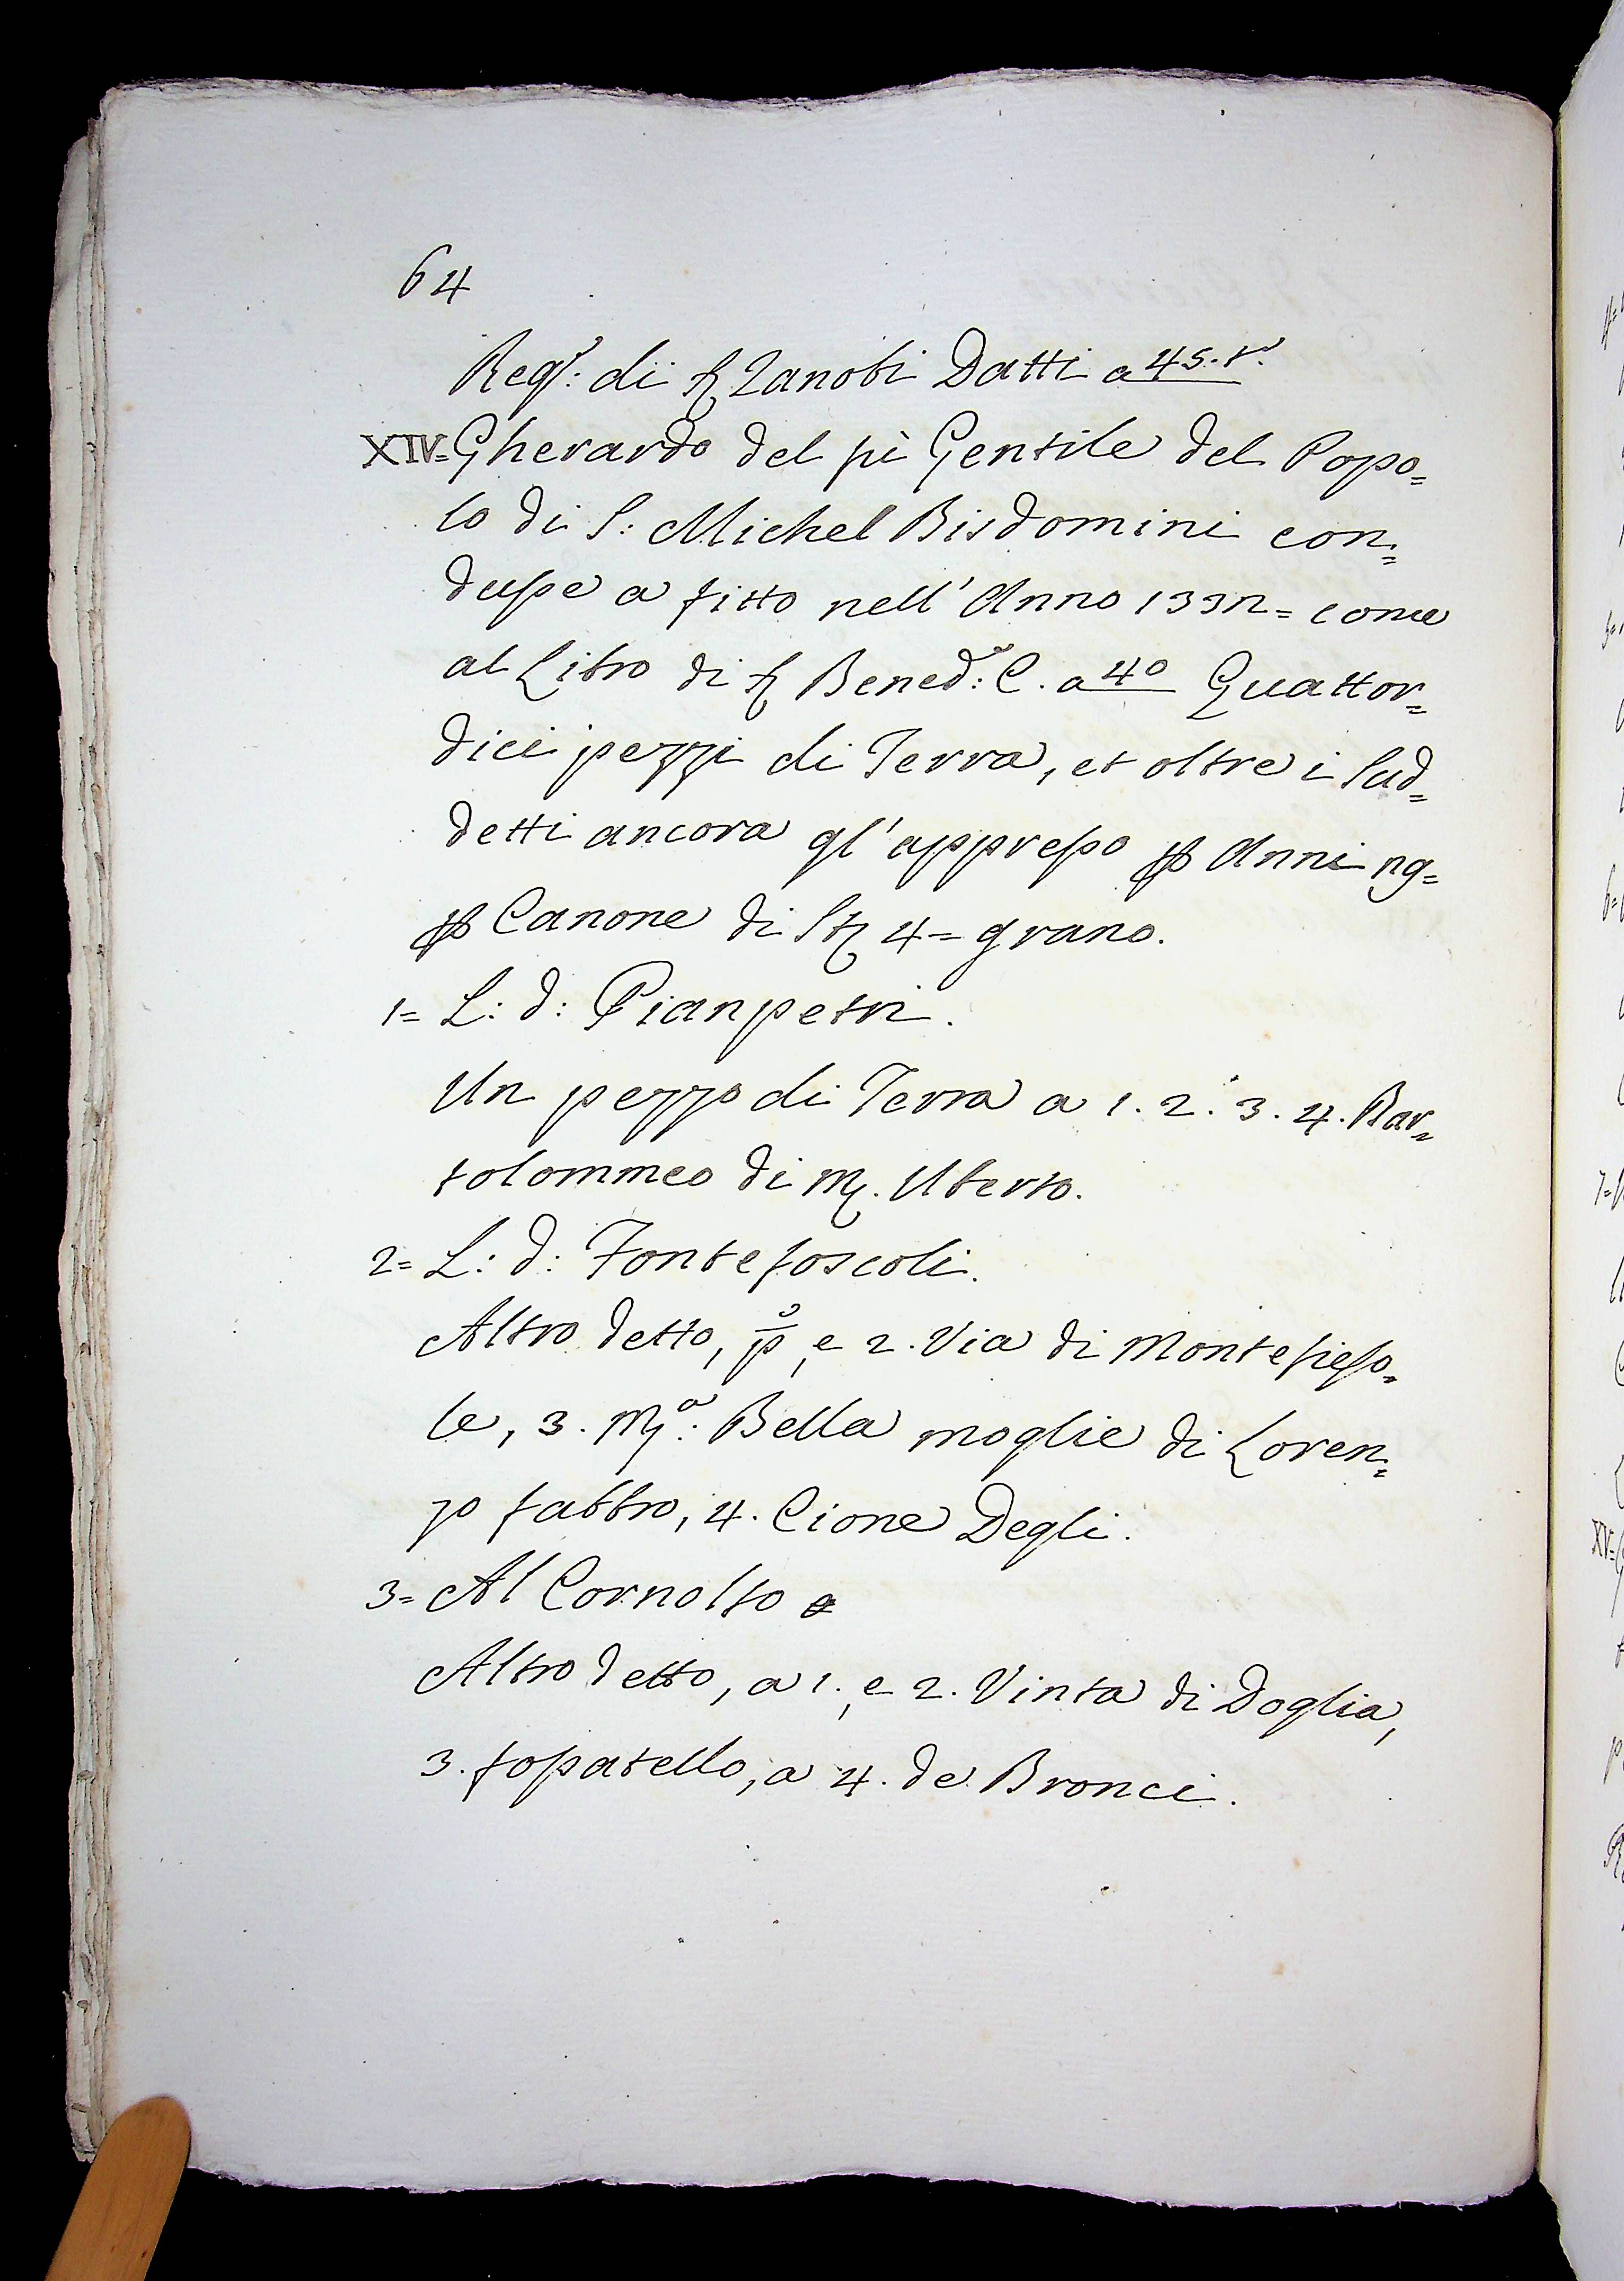 64
Reg.º: di Zanobi Datti a 45. tº.
XIV= Gherardo del fù Gentile del Popo=
lo di S: Michel Bisdomini con=
dusse a fitto nell' Anno 1332= come
al Libro di Bened:º C. a 40 Quattor=
dici pezzi di Terra, et oltre i Sud=
detti ancora gl' appresso p Anni 29=
p Canone di St 4= grano.
1= L: d: Pianpetri.
Un pezzo di Terra a 1. 2. 3. 4. Bar=
tolommeo di M. Uberto.
2= L: d: Fontefoscoli.
Altro detto, pº, e 2. Via di Montefieso=
le, 3. Mª: Bella moglie di Loren=
zo fabbro, 4. Cione Degli.
3= Al Cornolto
Altro detto, a 1., e 2. Vinta di Doglia,
3. fossatello, a 4. de Bronci.